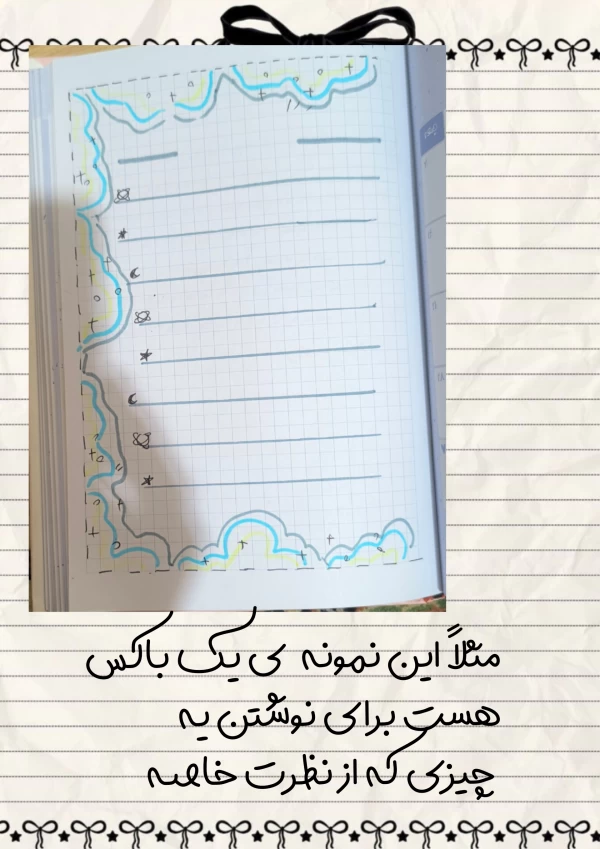 مثلاً این نمونه ی یک باکس
هست برای نوشتن یه
چیزی که از نظرت خاصه